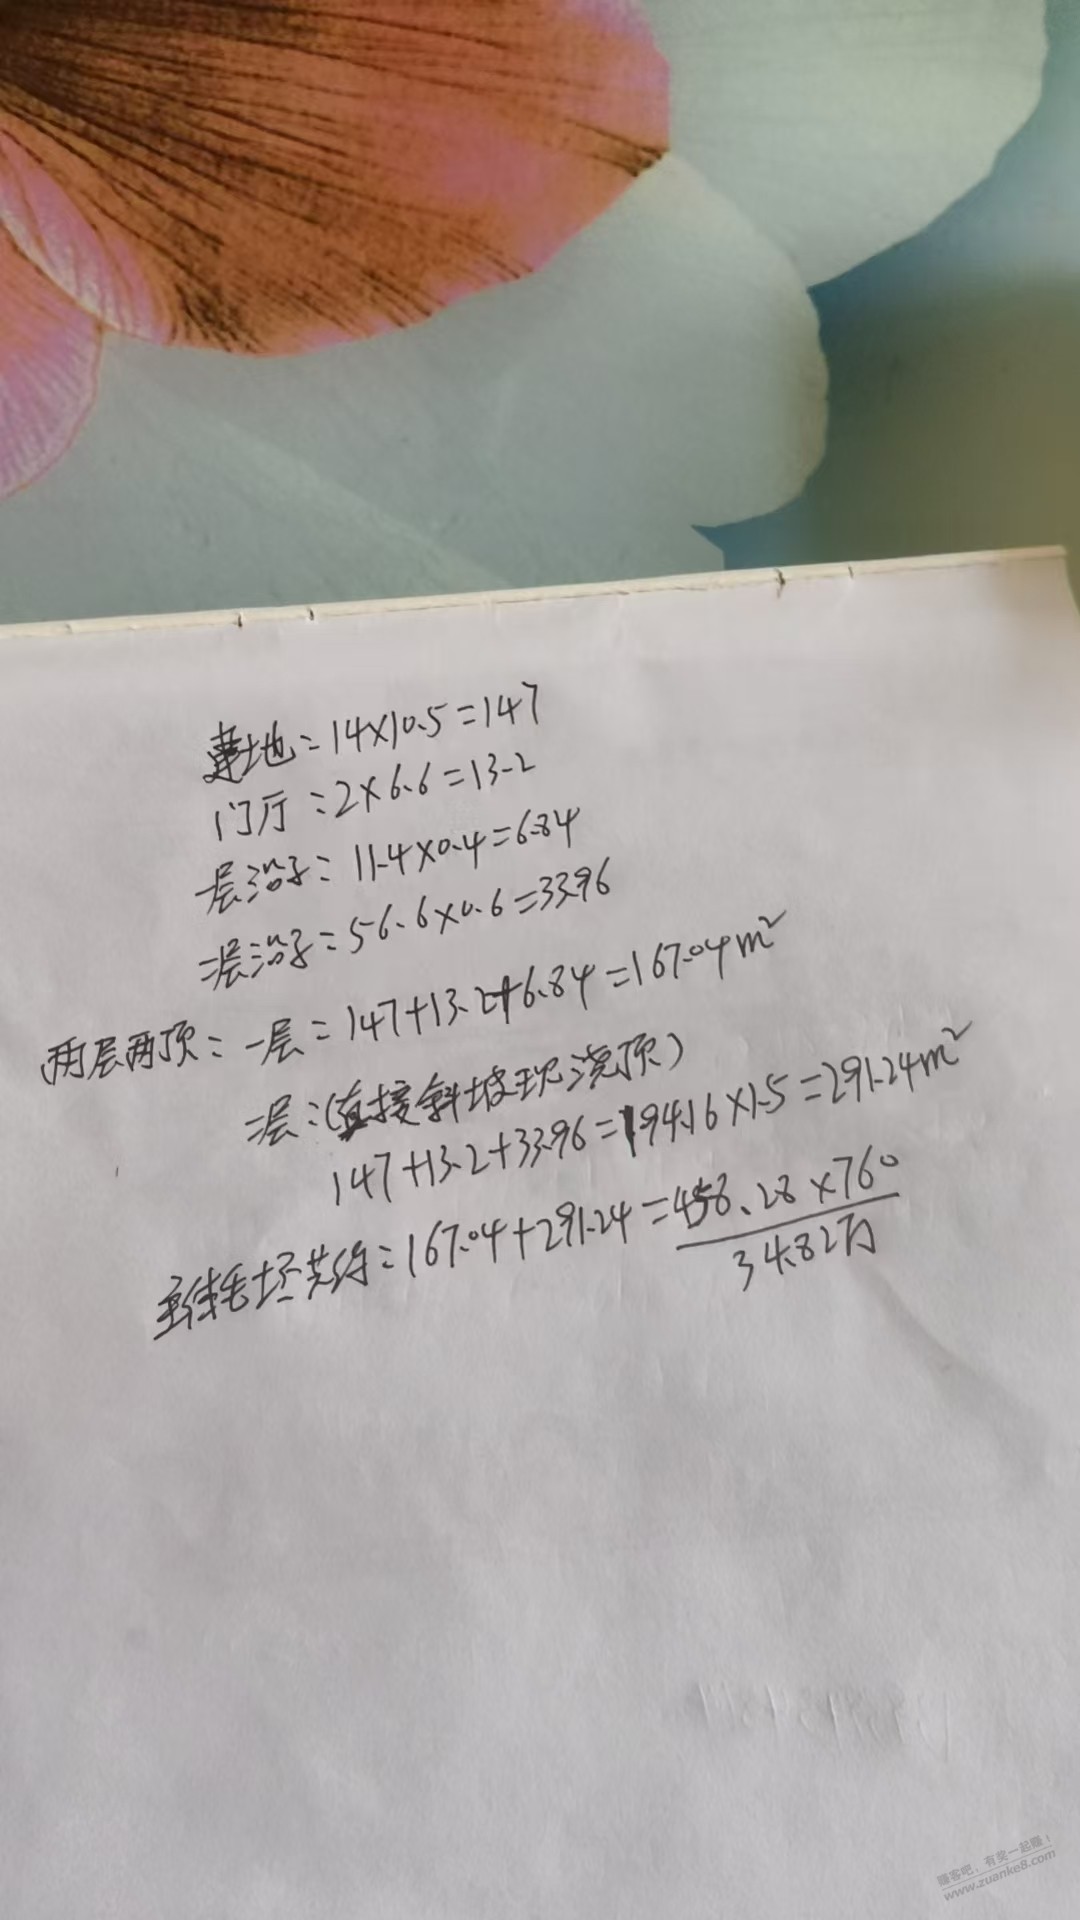 基地:14×10.5=147
门厅:2×6.6=13.2
一层沿子:11.4×0.4=6.84
二层沿子:56.6×0.6=33.96
两层两顶:一层=147+13.2+6.84=167.04m²
二层:(直接斜坡现浇顶)
147+13.2+33.96=194.16×1.5=291.24m²
主体毛坯共约:167.04+291.24=458.28×760
34.82万
赚客吧,有奖一起赚!
www.zuanke8.com